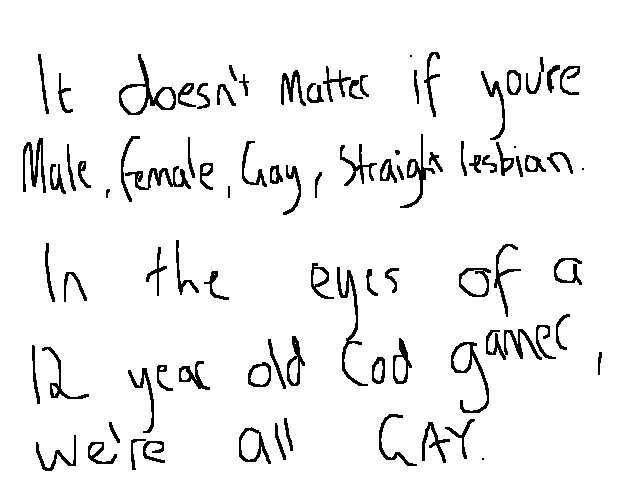 It doesn't matter if you're
Male, Female, Gay, Straight lesbian.
In the eyes of a
12 year old Cod gamer,
we're all GAY.